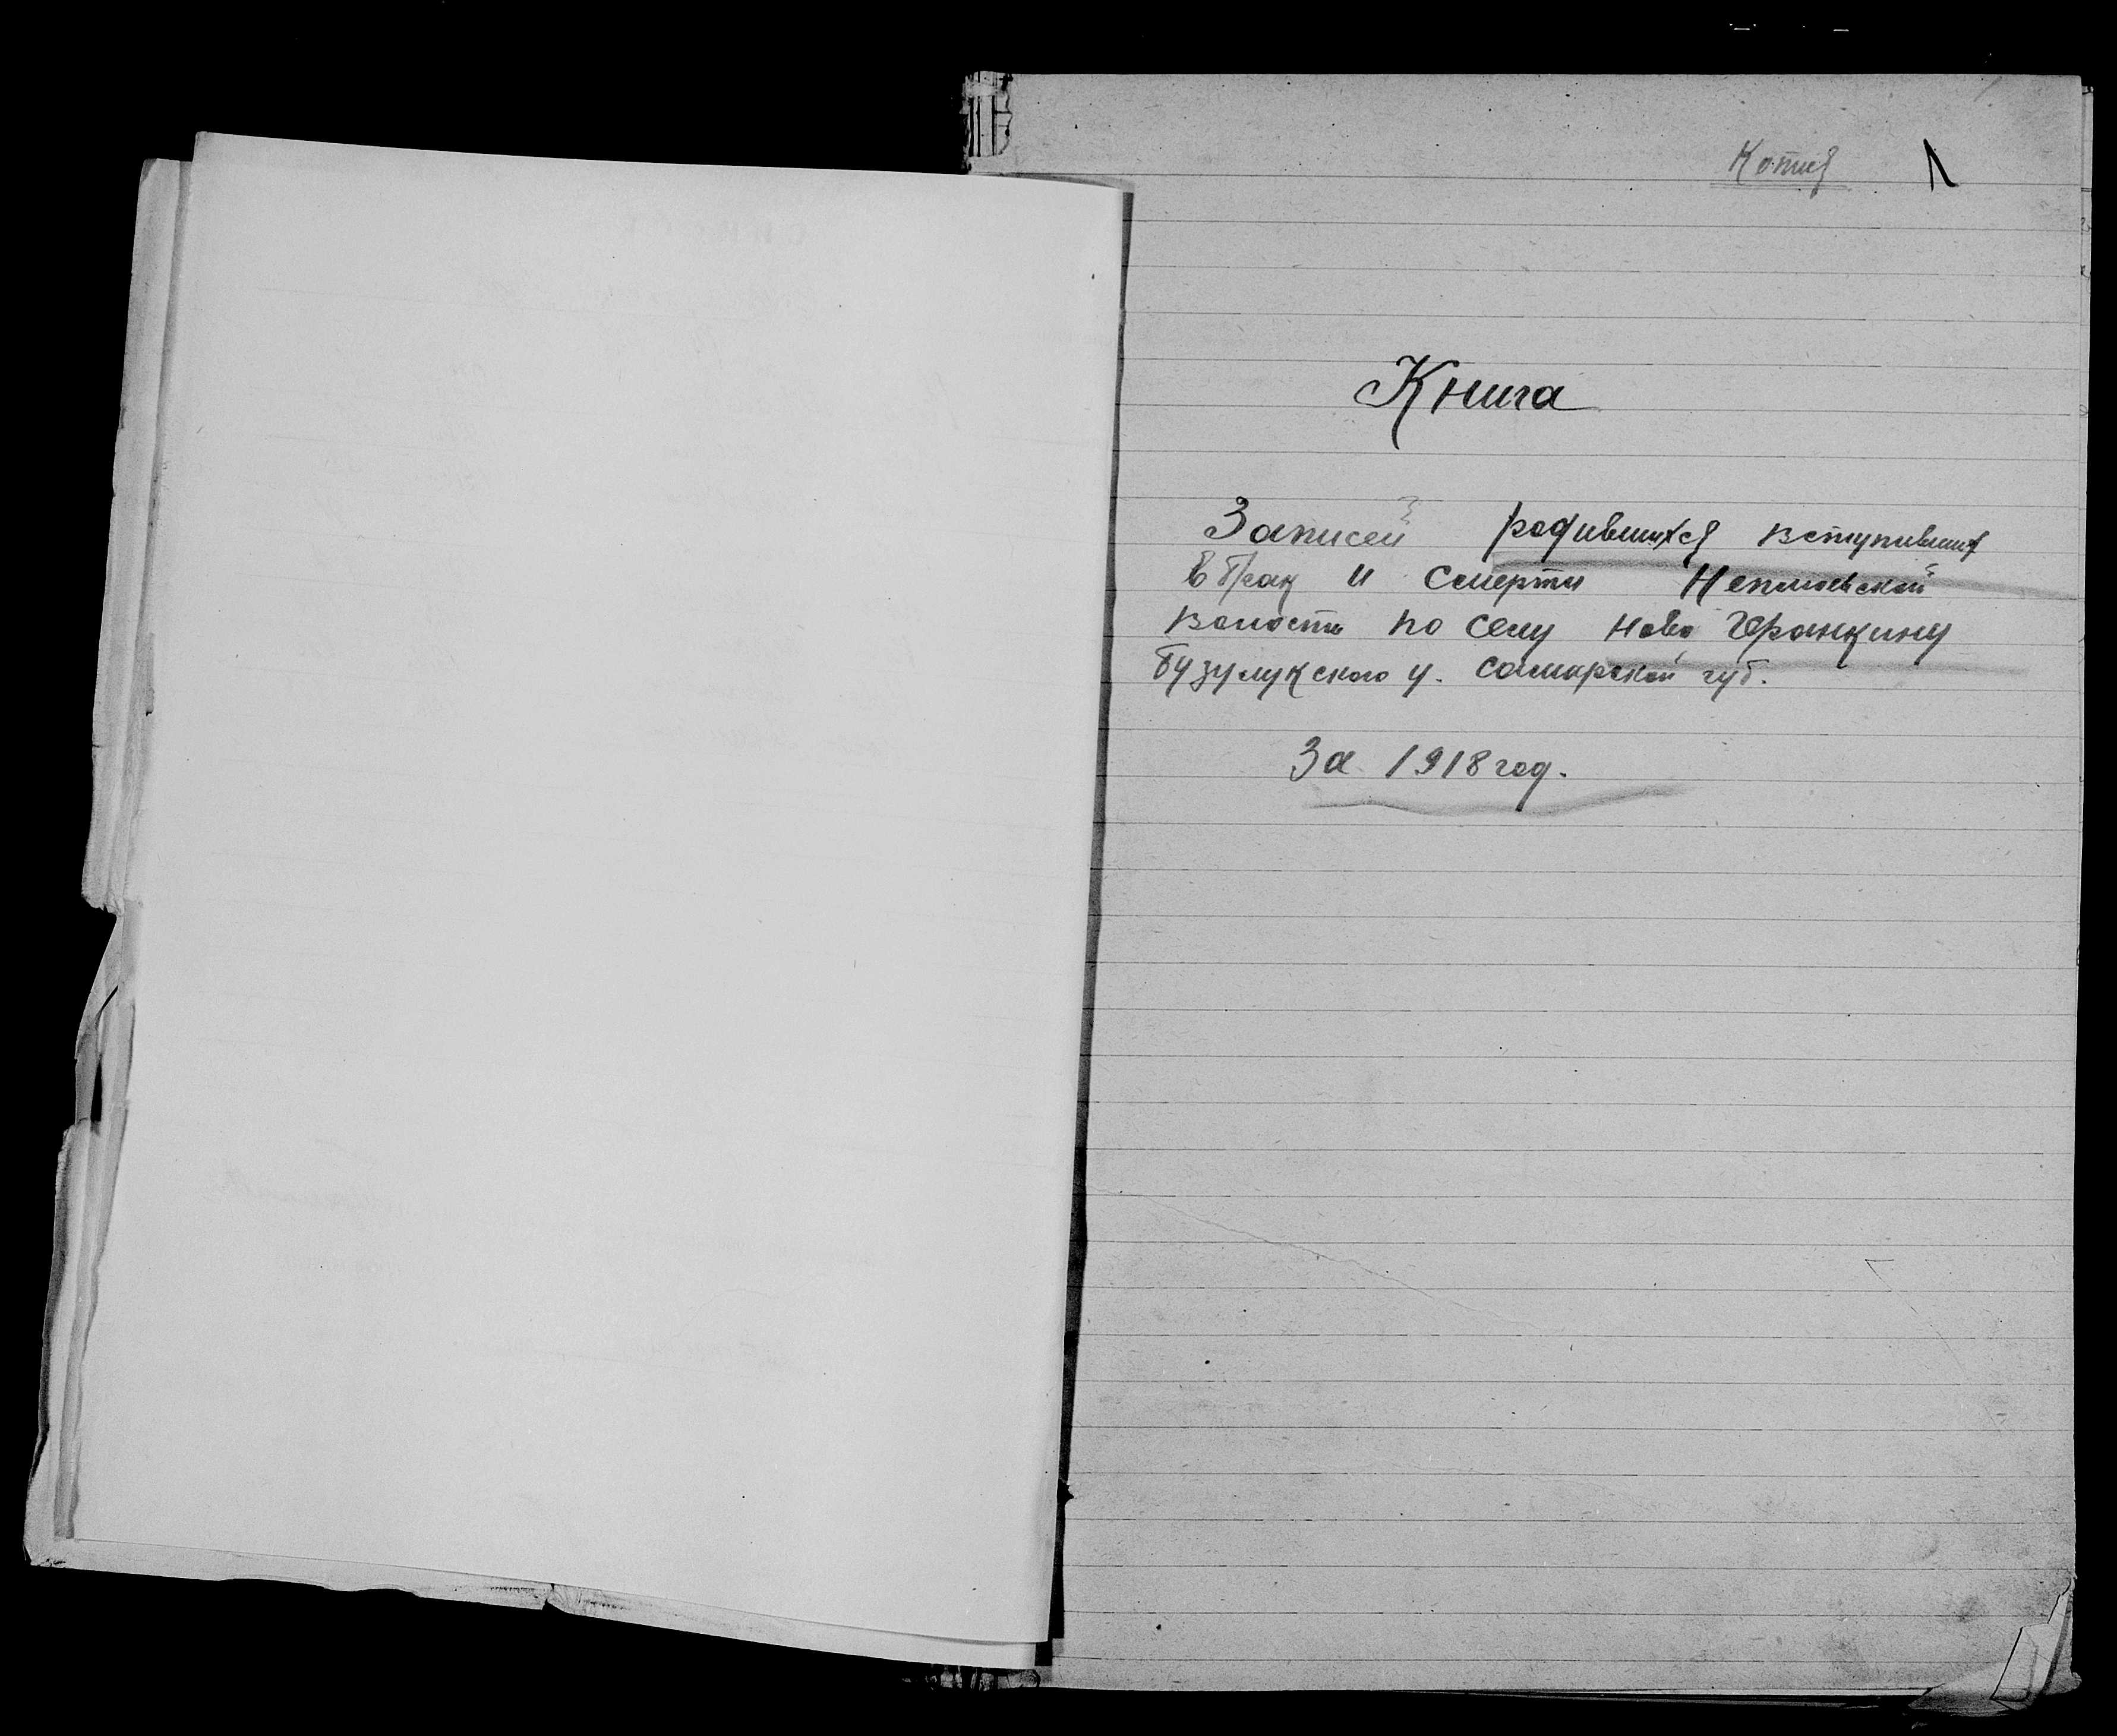 Копия 1
Книга
Записей родившихся вступивших
в брак и смерти Неплюевской
волости по селу Ново Геранкину
бузулукского у. самарской губ.
За 1918 год.